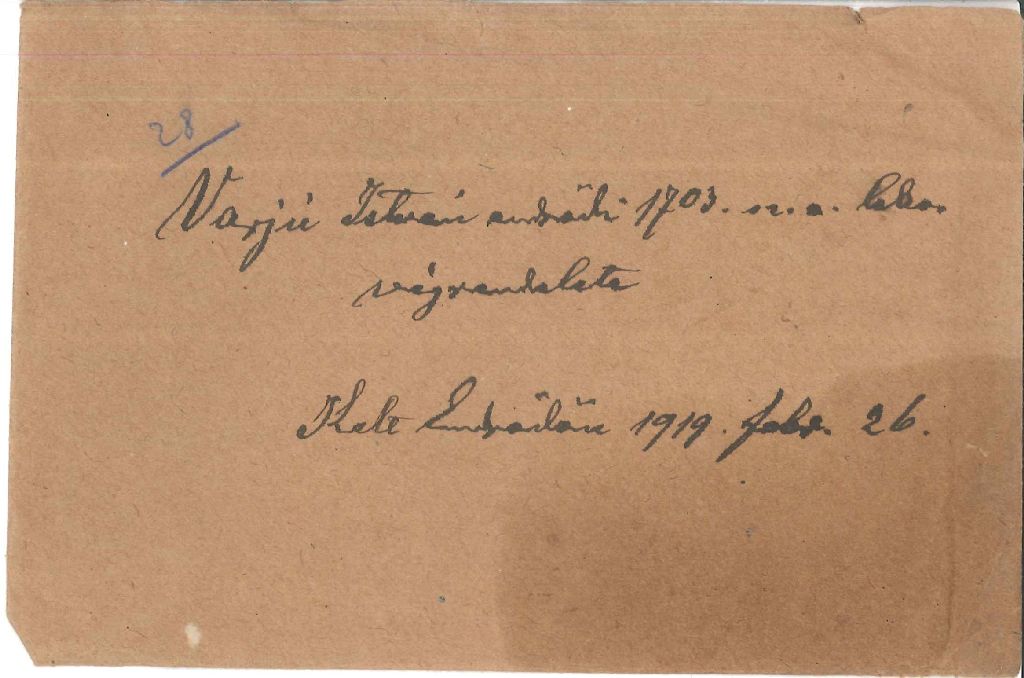 28/
Varjú István endrődi 1703. sz. a. lakos
végrendelete
Kelt Endrődön 1919. febr. 26.